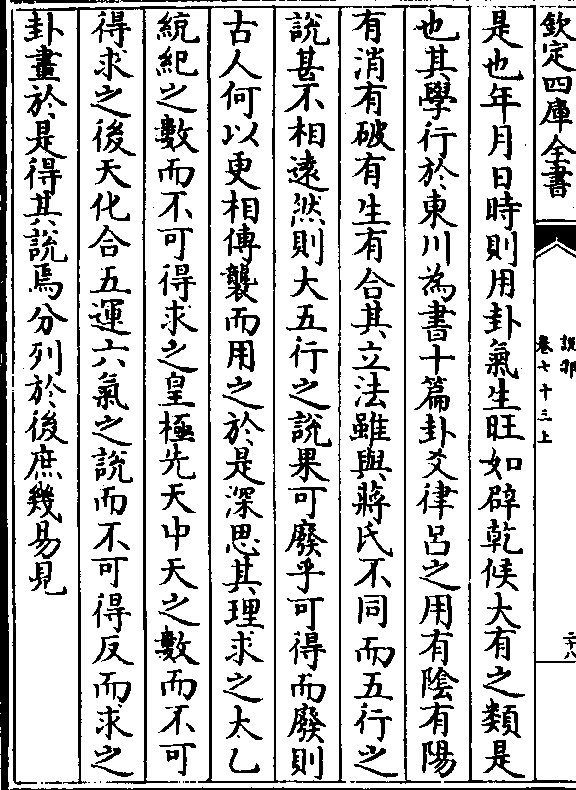 欽定四庫全書
說郛
卷七十三上
二十八
是也年月日時則用卦氣生旺如辟乾候大有之類是
也其學行於東川為書十篇卦爻律呂之用有隂有陽
有消有破有生有合其立法雖與蔣氏不同而五行之
說甚不相遠然則大五行之說果可廢乎可得而廢則
古人何以更相傳襲而用之於是深思其理求之太乙
統紀之數而不可得求之皇極先天中天之數而不可
得求之後天化合五運六氣之說而不可得反而求之
卦畫於是得其說焉分列於後庶幾易見